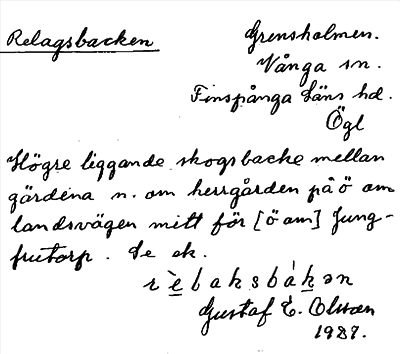 Relagsbacken
Grensholmen.
Vånga sn.
Finspånga Läns hd.
Ögl
Högre liggande skogsbacke mellan
gärdena n. om herrgården på ö om
landsvägen mitt för [ö om] Jung-
frutorp. Se ek.
rèbaksbákən
Gustaf E. Olsson
1927.